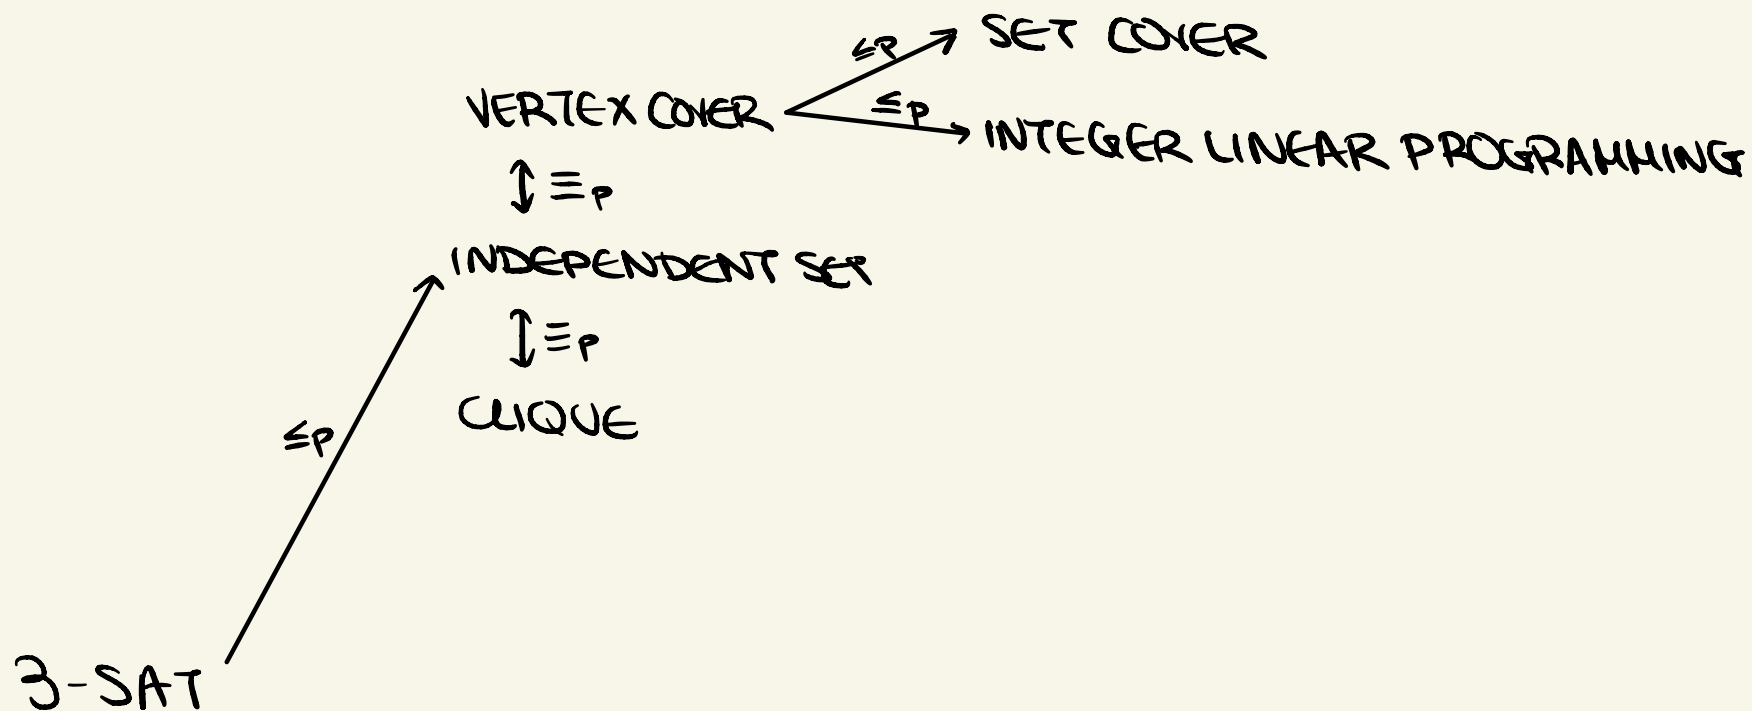 ≤p SET COVER
VERTEX COVER ≤p INTEGER LINEAR PROGRAMMING
≡p
INDEPENDENT SET
≡p
CLIQUE
≤p
3-SAT